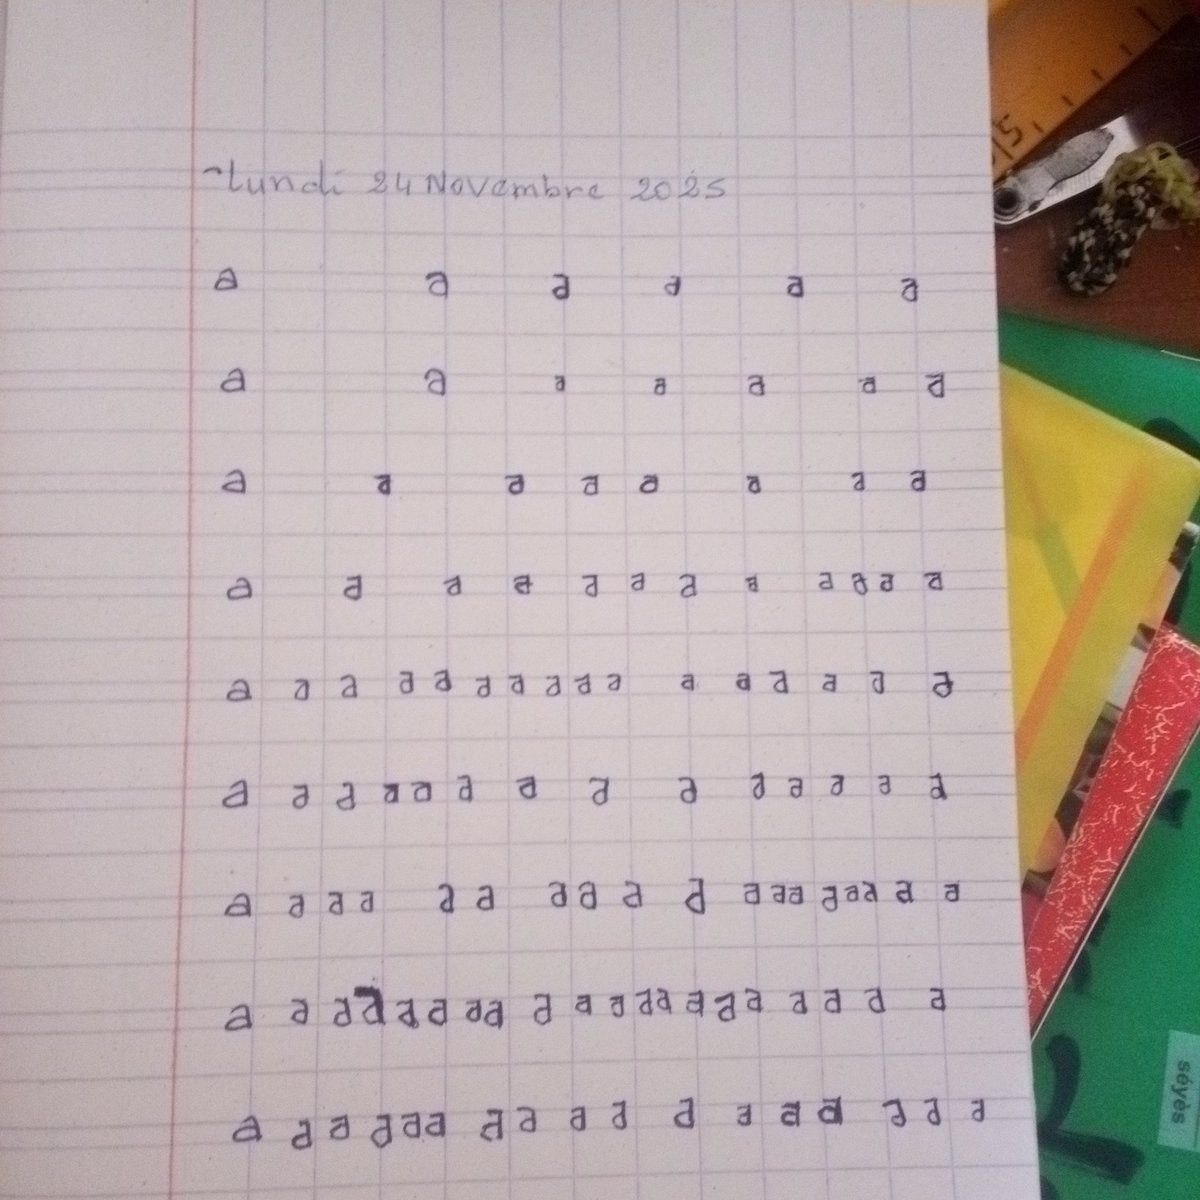 Lundi 24 Novembre 2025
a a a a a a
a a a a a a a
a a a a a a a a
a a a a a a a a a a a a
a a a a a a a a a a a a a a a a
a a a a a a a a a a a a a a
a a a a a a a a a a a a a a a a a a
a a a a a a a a a a a a a a a a a a a a
a a a a a a a a a a a a a a a a a
15
seyès